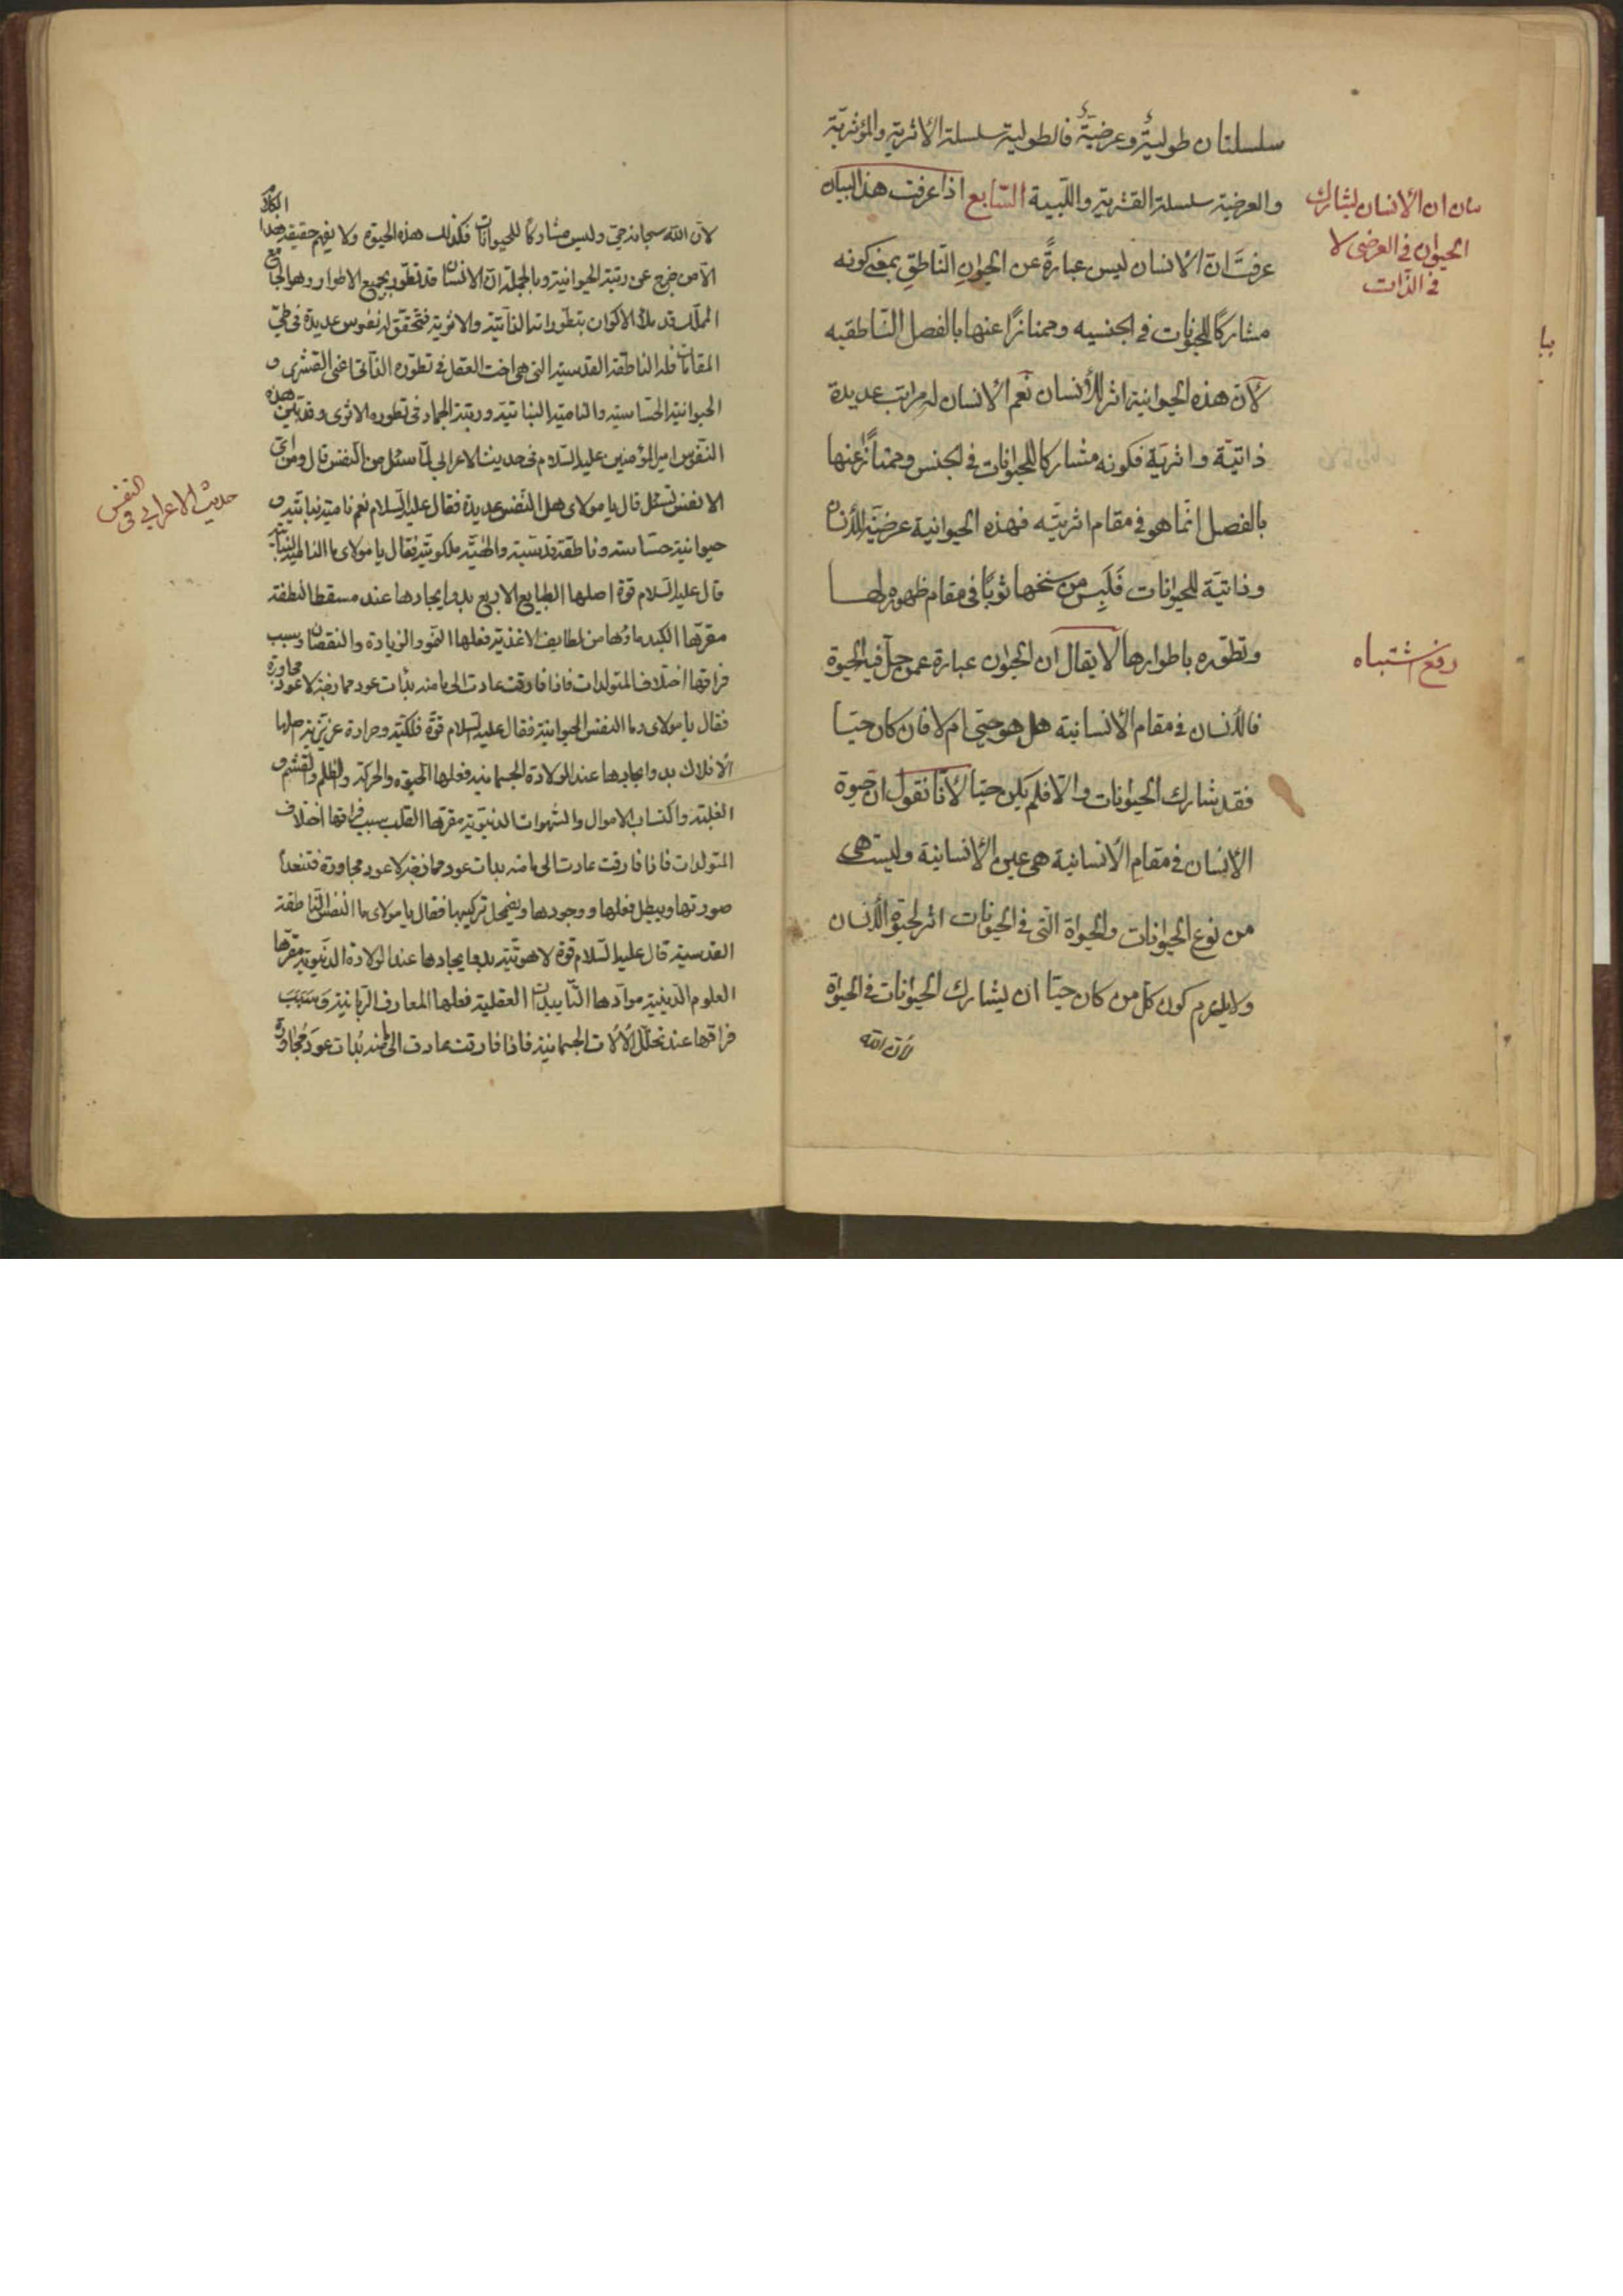 سلسلتان طوليةٌ وعرضيّةٌ فالطولية سلسلة الاثرية والمؤثريّة
والعرضية سلسلة القشرية واللّبية السّابع اذا عرفت هذا البيان
عرفتَ انّ الانسان ليس عبارةً عن الحيوانِ النّاطقِ بمعنى كونه
مشاركًا للحيوانات فى الجنسيه وممتازًا عنها بالفصل النّاطقيه
لأنّ هذه الحيوانية اثر للأنسان نَعم الأنسان له مراتب عديدة
ذاتيّة واثريّة فكونه مشاركا للحيوانات فى الجنس وممتازًا عنها
بالفصل انّما هو فى مقام اثريّته فهذه الحيوانية عرضيّة للأنسان
وذاتيّة للحيوانات فَلَبِسَ من سنخها ثوبًا فى مقام ظهوره لها
وتطوّره باطوارها لا يقال ان الحيوان عبارة عمن حلّ فيه الحيوة
فالأنسان فى مقام الأنسانية هل هو حيّ ام لا فان كان حيّا
فقد شارك الحيوانات والّا فلم يكن حيّا لأنّا نقول ان حيوة
الأنسان فى مقام الأنسانية هى عين الأنسانية وليست هى
من نوع الحيوانات والحيواة الّتى فى الحيوانات اثر لحيوة الأنسان
ولا يلزم كون كلّ من كان حيّا ان يشارك الحيوانات فى الحيواة
لأن الله
ان الأنسان يشارك
الحيوان فى العرضى لا
فى الذّات
رفع اشتباه
لانّ الله سبحانه حىّ وليس مشاركًا للحيوانات فكذلك هذه الحيوة ولا يفهم حقيقة هذا الكلام
الّا من خرج عن رتبة الحيوانية وبالجملة انّ الانسان قد تطوّر بجميع الاطوار وهو الجامع
المملّك قد ملأ الاكوان بتطوّراته الذّاتيّة والاثرية فتحقّق له نفوس عديدة فى طىّ
المقامات فله الناطقة القدسية التى هى اخت العقل فى تطوره الذّاتى اعنى القشرى و
الحيوانية الحسّاسية والنامية النباتيّة ورتبة الجماد فى تطوره الاثرى وقد بيّن هذه
النّفوس امير المؤمنين عليه السّلام فى حديث الاعرابى لمّا سئل عن النفس قال ومن اىّ
الانفس تسئل قال يا مولاى هل النّفس عديدة فقال عليه السّلام نعم نامية نباتيّة و
حيوانية حسّاسة وناطقة قدسيّة والهيّة ملكوتيّة فقال يا مولاى ما النامية النباتيّة
قال عليه السّلام قوّة اصلها الطبايع الاربع بدو ايجادها عند مسقط النطفة
مقرّها الكبد مادّتها من لطايف الاغذية فعلها النموّ والزيادة والنقصان وسبب
فراقها اختلاف المتولدات فاذا فارقت عادت الى ما منه بدأت عود ممازجة لا عود مجاورة
فقال يا مولاى وما النفس الحيوانية فقال عليه السلام قوّة فلكيّة وحرارة غريزية اصلها
الأفلاك بدو ايجادها عند الولادة الجسمانية فعلها الحيوة والحركة والظلم والغشم و
الغلبة واكتساب الاموال والشهوات الدنيوية مقرها القلب سبب فراقها اختلاف
المتولدات فاذا فارقت عادت الى ما منه بدات عود ممازجة لا عود مجاورة فتنعدم
صورتها ويبطل فعلها ووجودها ويضمحل تركيبها فقال يا مولاى ما النفس النّاطقة
القدسية قال عليه السّلام قوّة لاهوتيّة بدو ايجادها عند الولادة الدنيوية مقرّها
العلوم الدينية موادّها التّأييدات العقلية فعلها المعارف الربّانية وَسَبَبُ
فراقها عند تحلّل الألات الجسمانية فاذا فارقت عادت الى ما منه بُدأت عودَ مُجاورة
حديث الاعرابى فى
النفس